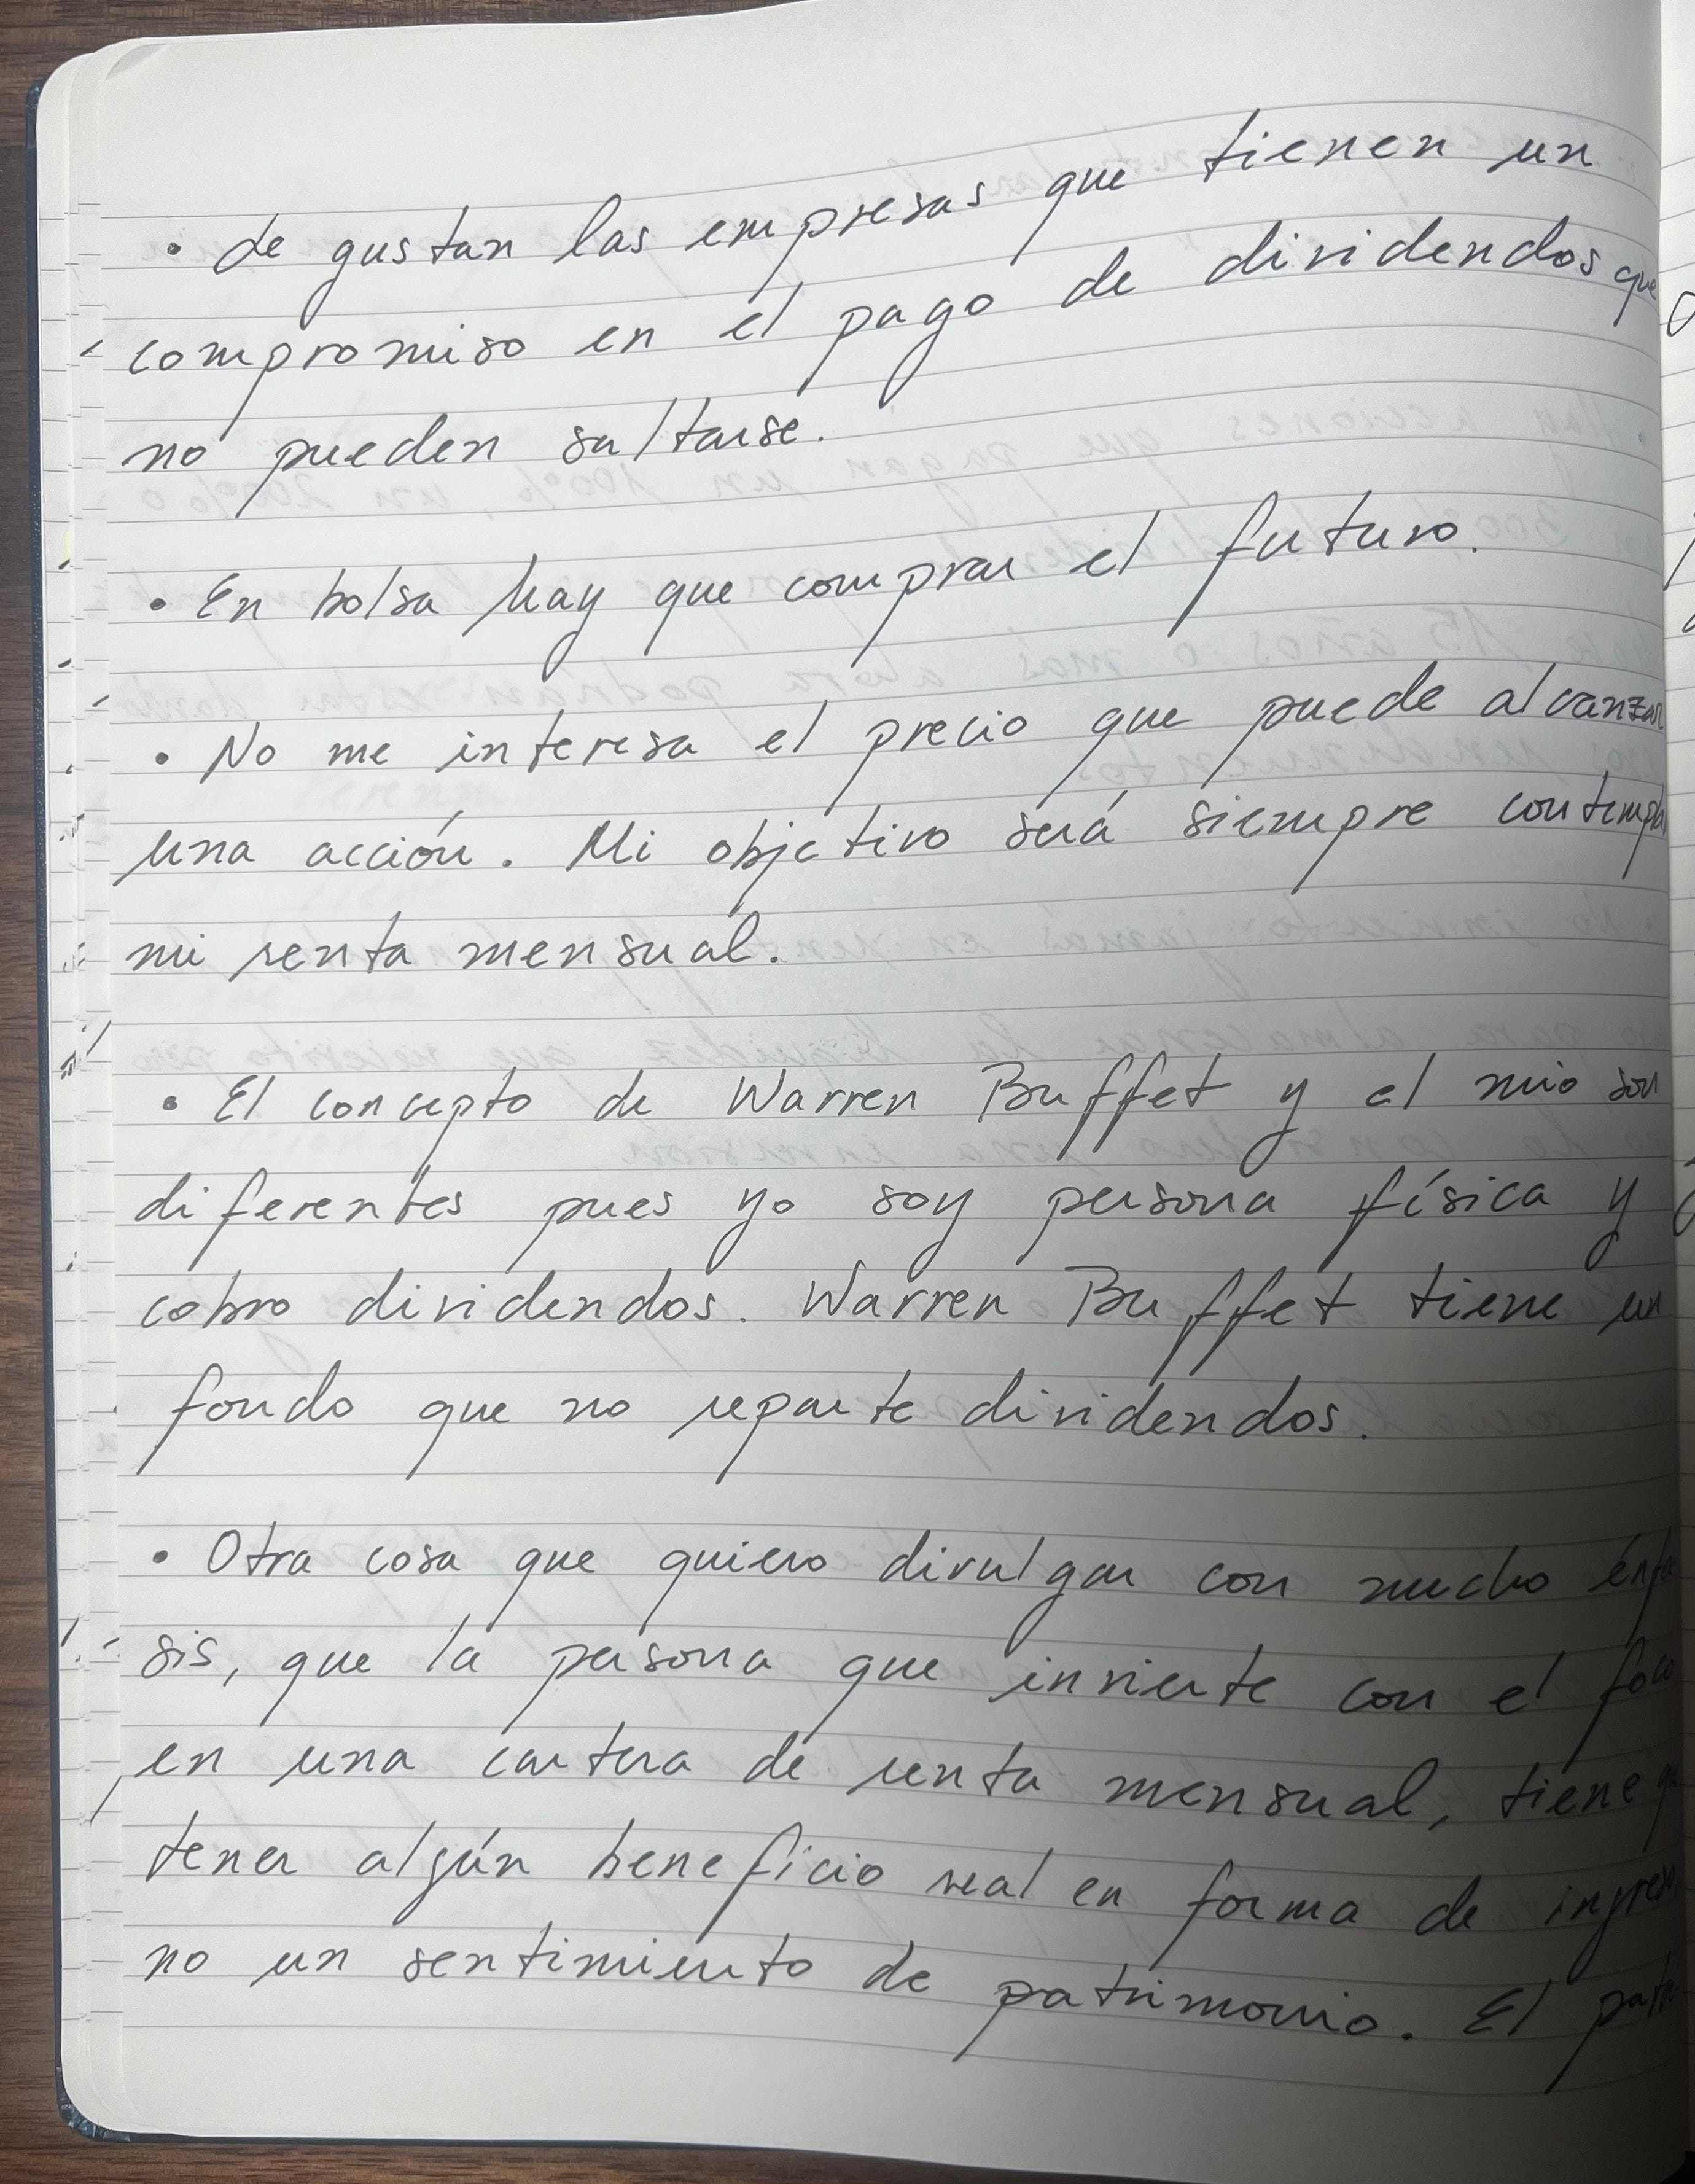 • Le gustan las empresas que tienen un
compromiso en el pago de dividendos que
no pueden saltarse.
• En bolsa hay que comprar el futuro.
• No me interesa el precio que puede alcanzar
una acción. Mi objetivo será siempre contempla
mi renta mensual.
• El concepto de Warren Buffet y el mio son
diferentes pues yo soy persona física y
cobro dividendos. Warren Buffet tiene un
fondo que no reparte dividendos.
• Otra cosa que quiero divulgar con mucho énfa
sis, que la persona que invierte con el foco
en una cartera de renta mensual, tiene que
tener algún beneficio real en forma de ingreso
no un sentimiento de patrimonio. El patri